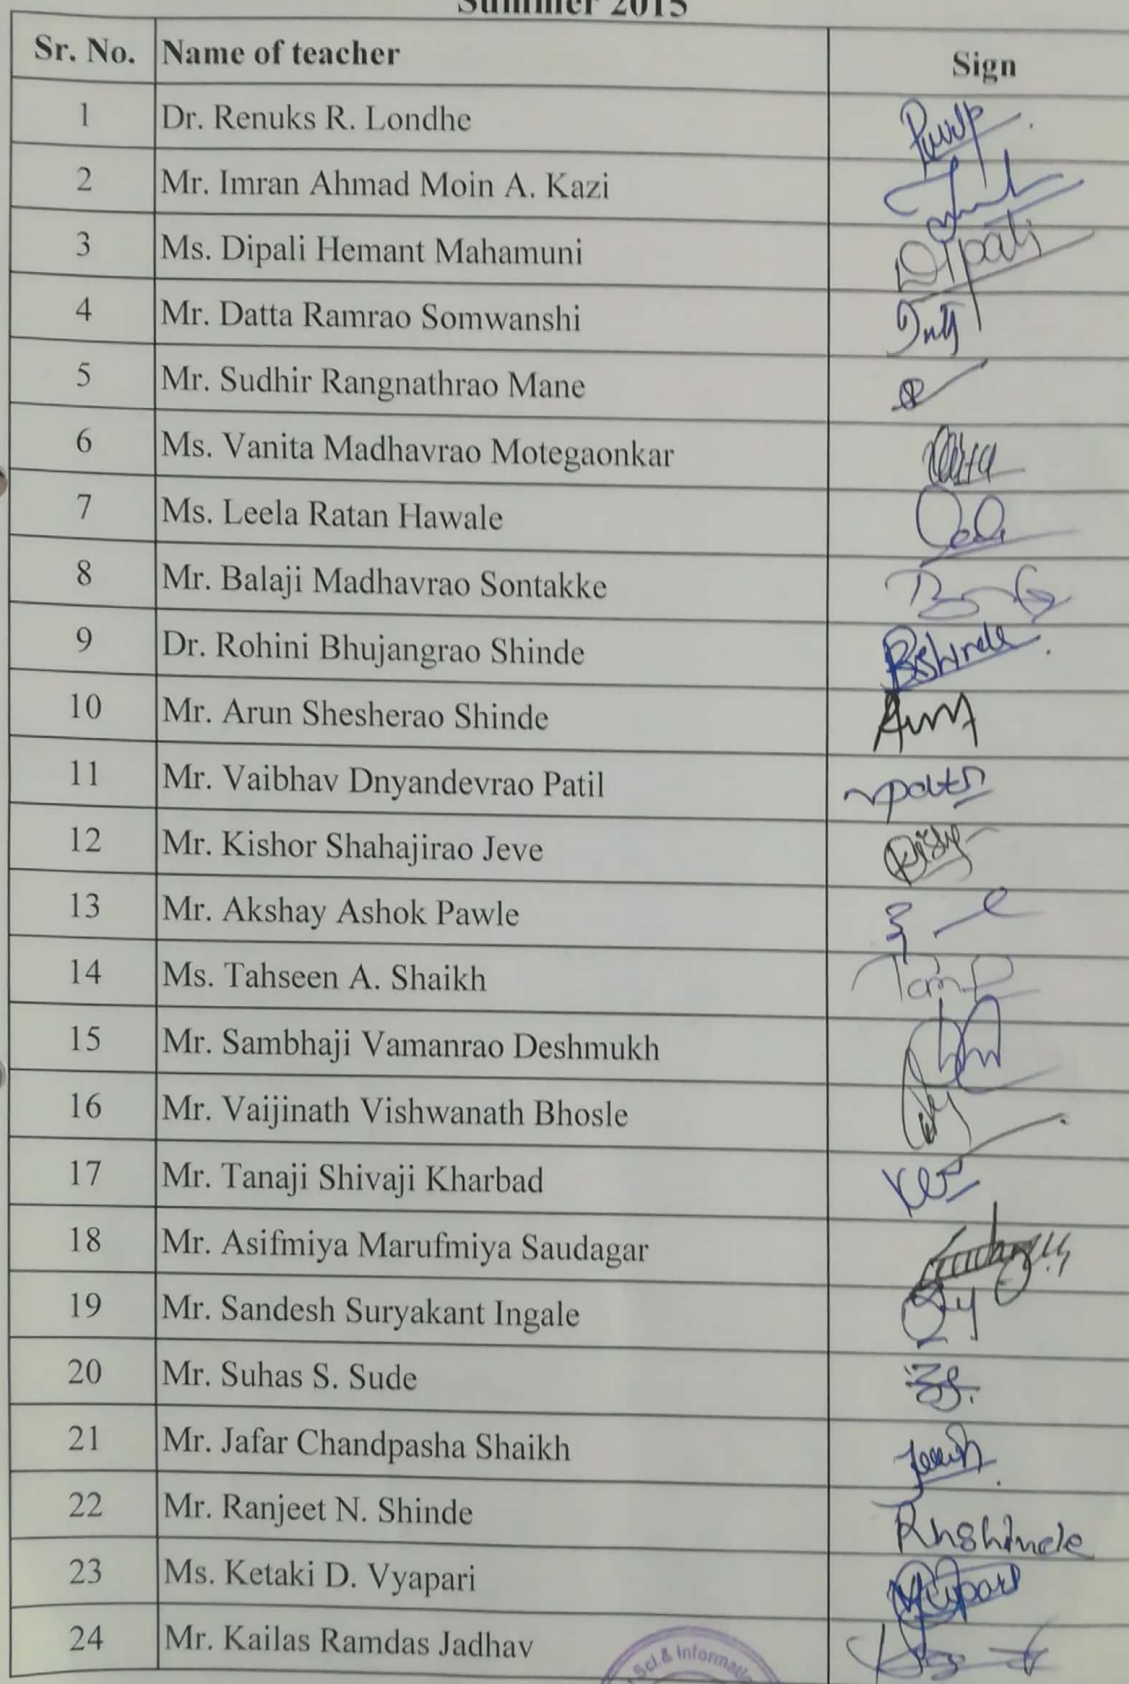 Summer 2015
Sr. No. Name of teacher Sign
1 Dr. Renuks R. Londhe
2 Mr. Imran Ahmad Moin A. Kazi
3 Ms. Dipali Hemant Mahamuni Dipali
4 Mr. Datta Ramrao Somwanshi
5 Mr. Sudhir Rangnathrao Mane
6 Ms. Vanita Madhavrao Motegaonkar
7 Ms. Leela Ratan Hawale
8 Mr. Balaji Madhavrao Sontakke
9 Dr. Rohini Bhujangrao Shinde RBShinde
10 Mr. Arun Shesherao Shinde
11 Mr. Vaibhav Dnyandevrao Patil
12 Mr. Kishor Shahajirao Jeve
13 Mr. Akshay Ashok Pawle
14 Ms. Tahseen A. Shaikh
15 Mr. Sambhaji Vamanrao Deshmukh
16 Mr. Vaijinath Vishwanath Bhosle
17 Mr. Tanaji Shivaji Kharbad
18 Mr. Asifmiya Marufmiya Saudagar
19 Mr. Sandesh Suryakant Ingale
20 Mr. Suhas S. Sude
21 Mr. Jafar Chandpasha Shaikh
22 Mr. Ranjeet N. Shinde Rnshinde
23 Ms. Ketaki D. Vyapari
24 Mr. Kailas Ramdas Jadhav
Sci.& Informatio